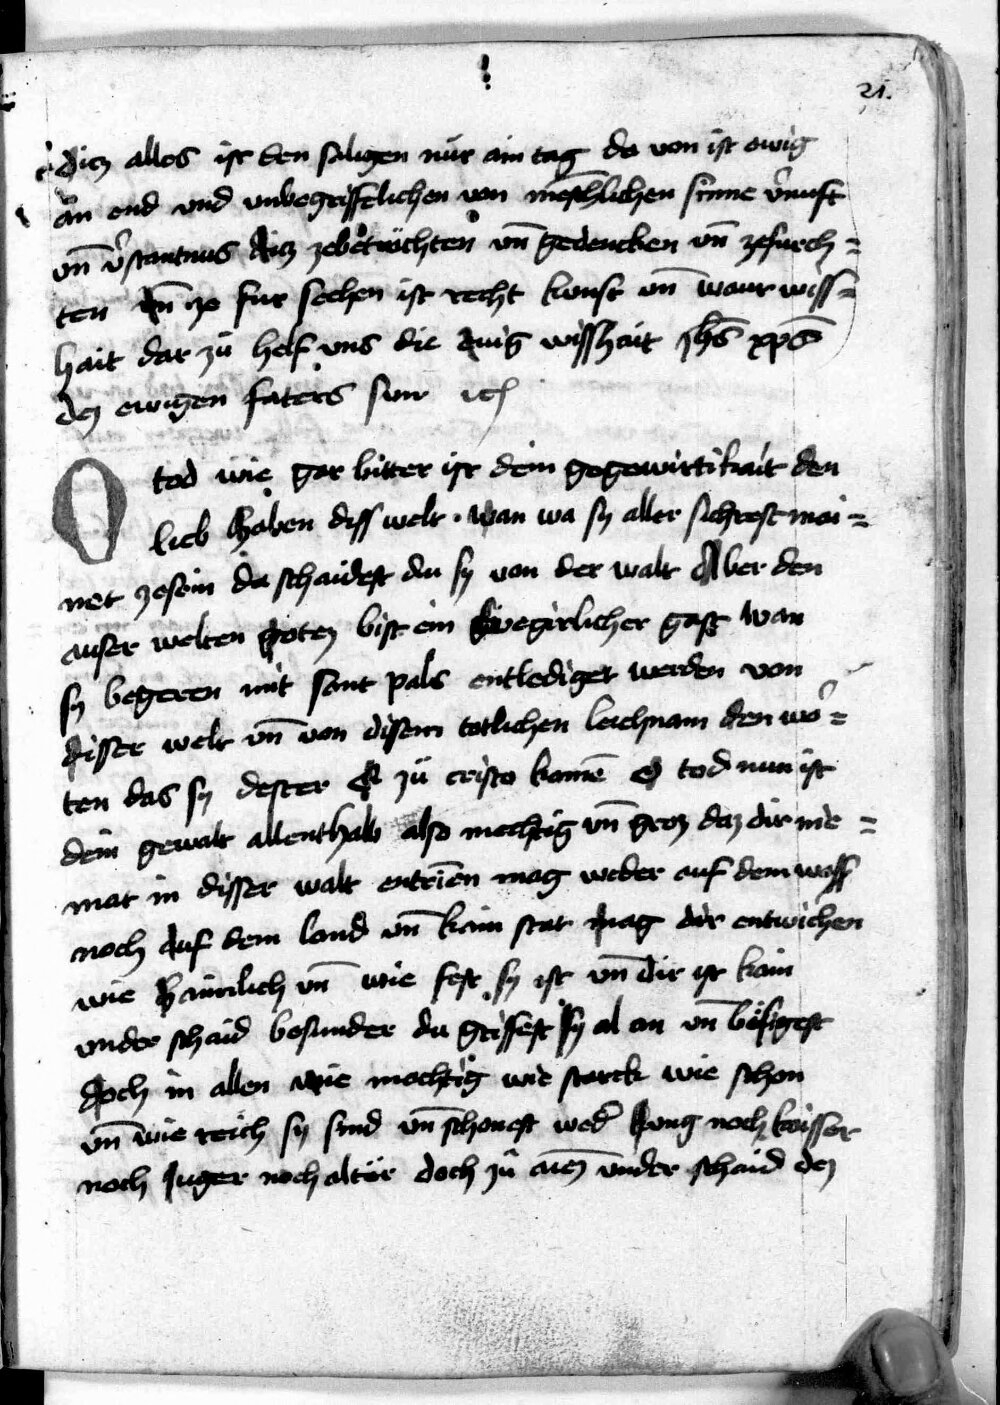 21.
dicz alles ist den saligen nür ain tag do von ist ewig
ān end vnd vnbegriffelichen von menschlichen sinne v̄nuft
vn̄ v̄stantnus dicz zebetrӓchten vn̄ gedencken vn̄ zefurch=
ten vn̄ ze fur sechen ist recht kunst vn̄ waur wiss=
hait dar zů helf vns die ewig wisshait jhs xp̄s
dez ewigen faters sun
O tod wie gar bitter ist dein gegewürtikait den
lieb haben diss welt. wan wa sy aller sichrest mai=
net zesein da schaidest du sy von der walt Aber den
auser welten gotez bist ein begirlicher gast wan
sy begeren mit sant pals entlediget werden von
disser welt vn̄ von disem totlichen leichnam den wo=
ten das sy dester E zü cristo kamē O tod nun ist
dein gewalt allenthalb also mechtig vn̄ groz daz dir nie=
mat in disser walt entrinen mag weder auf dem wass
noch auf dem land vn̄ kain stat mag dir entwichen
wie haimlich vn̄ wie fest sy ist vn̄ dir ist kain
vnder schaid besunder du griffest sy al an vn̄ besigest
doch in allen wie mechtig wie starck wie schon
vn̄ wie reich sy sind vn̄ schonest wed̄ kung noch kaisser
noch Juger noch altür doch zů vnder schaid dez